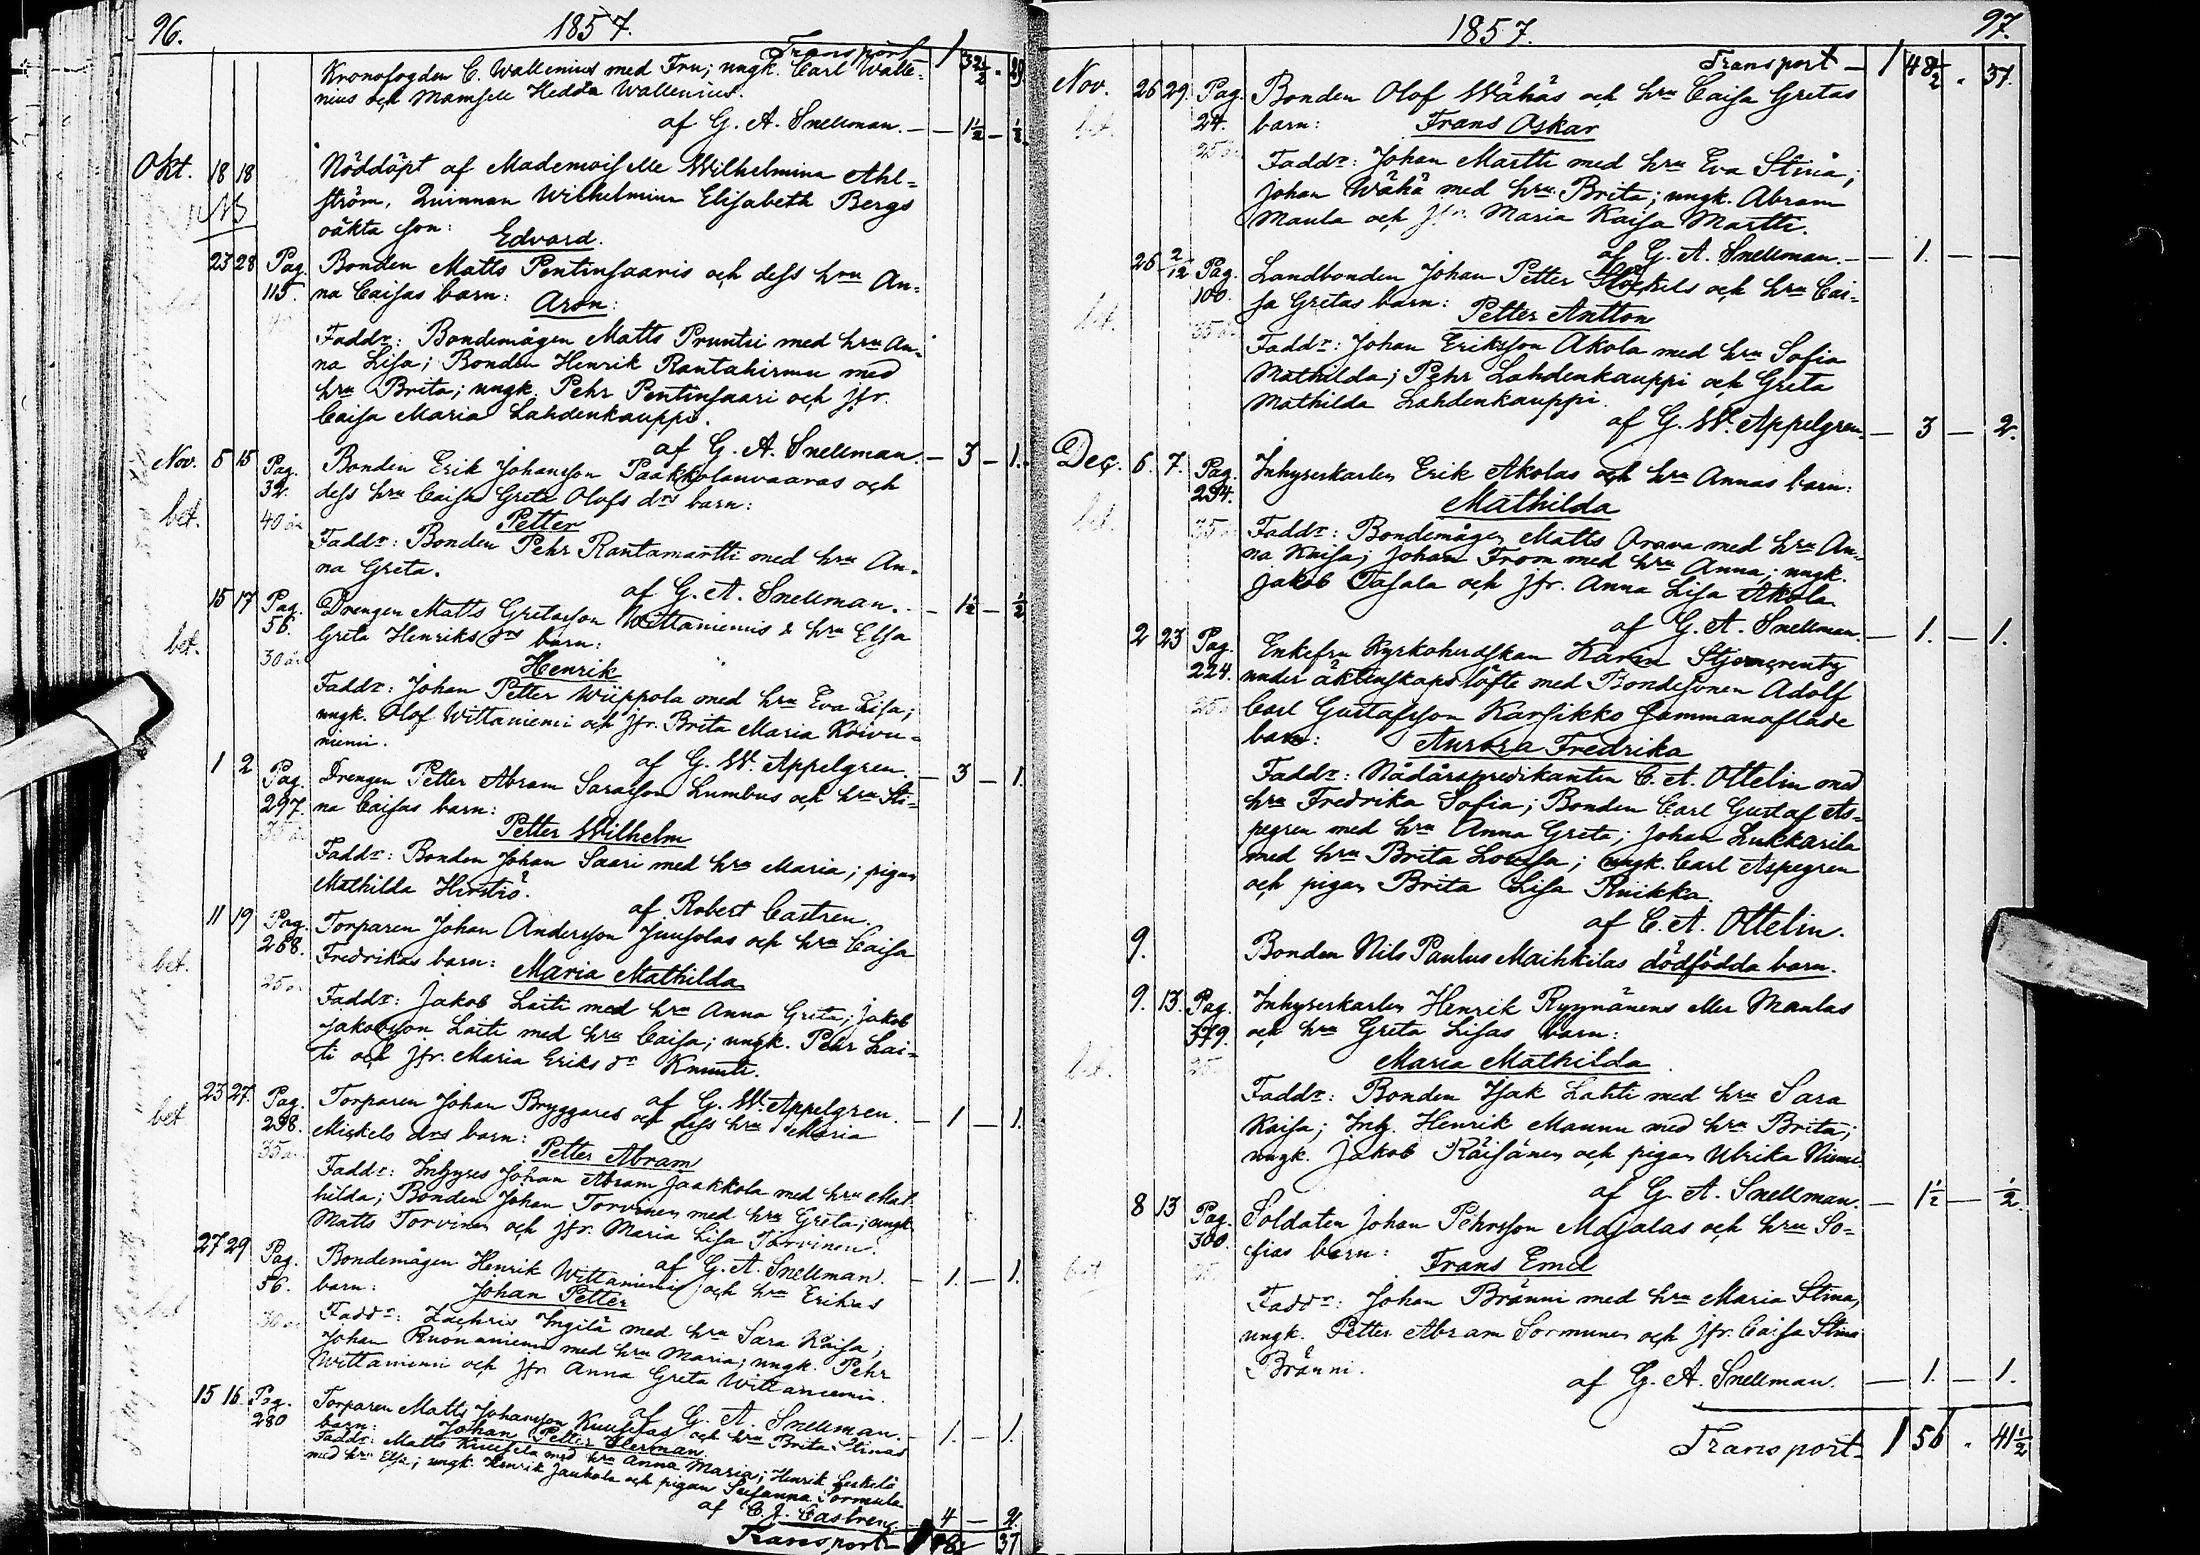 96.
1857.
Transport 1 32½ - 29
Kronofogden C. Wallenius med Fru; ungk. Carl Walle-
nius och Mamsell Hedda Wallenius.
af G. A. Snellman. — 1½ — ½
Okt. 18 18 Nöddöpt af Mademoiselle Wilhelmina Ahl-
NB ström, Quinnan Wilhelmina Elisabeth Bergs
oäkta son: Edvard.
23 28 Pag. Bonden Matts Pentinsaaris och dess hru An-
115. na Caisas barn: Aron:
Faddr: Bondemågen Matts Pruntti med hru An-
na Lisa; Bonden Henrik Rantahirmu med
hru Brita; ungk. Pehr Pentinsaari och jfr.
Caisa Maria Lahdenkauppi.
af G. A. Snellman. — 3 — 1.
Nov. 8 15 Pag. Bonden Erik Johansson Paakkolanvaaras och
32. dess hru Caisa Greta Olofs drs barn:
bet. 40 år Petter
Faddr: Bonden Pehr Rantamartti med hru An-
na Greta.
af G. A. Snellman. — 1½ — ½
15 17 Pag. Drengen Matts Gretasson Wittaniemis & hru Elsa
56. Greta Henriks drs barn:
bet. 30 år Henrik
Faddr: Johan Petter Wiippola med hru Eva Lisa;
ungk. Olof Wittaniemi och jfr. Brita Maria Koivu-
niemi.
af G. W. Appelgren. — 3 — 1.
1 2 Pag. Drengen Petter Abram Sarasson Lumbus och hru Sti-
297. na Caisas barn:
35 år Petter Wilhelm
Faddr: Bonden Johan Saari med hru Maria; pigan
Mathilda Hirstiö?
af Robert Castren.
11 19 Pag. Torparen Johan Andersson Juusolas och hru Caisa
268. Fredrikas barn: Maria Mathilda
bet. 25 år
Faddr: Jakob Laiti med hru Anna Greta; Jakob
Jakobsson Laiti med hru Caisa; ungk. Pehr Lai-
ti och jfr. Maria Eriks dr Knuuti.
af G. W. Appelgren. — 1 — 1.
23 27. Pag. Torparen Johan Bryggares och dess hru Maria
bet 298. Mickels drs barn:
35 år Petter Abram
Faddr: Inhyses Johan Abram Jaakkola med hru Mat-
hilda; Bonden Johan Torvinen med hru Greta; ungk.
Matts Torvinen och jfr. Maria Lisa Torvinen.
af G. A. Snellman. — 1. — 1.
27 29 Pag. Bondemågen Henrik Wittaniemis och hru Erikas
56. barn: Johan Petter
bet 30 år
Faddr: Zachris Ingilä med hru Sara Kaisa;
Johan Ruonaniemi med hru Maria; ungk. Pehr
Wittaniemi och jfr Anna Greta Wittaniemi.
af G. A. Snellman. — 1. — 1.
15 16. Pag. Torparen Matts Johansson Kuuselas och hru Brita Stinas
280 barn: Johan Petter Herman
Faddr: Matts Kuusela med hru Anna Maria; Henrik
med hru Elsa; ungk. Henrik Jaukola och pigan Susanna
af C. J. Castren. 4 — 2.
Transport 37
1857.
97.
Transport — 1 48½ - 37.
Nov. 26 29. Pag. Bonden Olof Wähäs och hru Caisa Gretas
bet. 24. barn: Frans Oskar
25 år
Faddr: Johan Martti med hru Eva Stina;
Johan Wähä med hru Brita; ungk. Abram
Maula och jfr. Maria Kaisa Martti.
af G. A. Snellman. — 1. — —
26 2/12 Pag. Landbonden Johan Petter Stockels och hru Cai-
100. sa Gretas barn: Petter Antton
bet. 35 år
Faddr: Johan Eriksson Akola med hru Sofia
Mathilda; Pehr Lahdenkauppi och Greta
Mathilda Lahdenkauppi.
af G. W. Appelgren. — 3 — 2.
Dec. 6. 7. Pag. Inhyseskarlen Erik Akolas och hru Annas barn:
294. Mathilda
bet. 35 år
Faddr: Bondemågen Matts Arava med hru An-
na Kaisa; Johan From med hru Anna; ungk.
Jakob Tasala och jfr. Anna Lisa Akola
af G. A. Snellman. — 1. — 1.
2 23 Pag. Enkefru Kyrkoherdskan Karin Stjerncreutz
224. under äktenskaps löfte med Bondesonen Adolf
25 Carl Gustafsson Karsikko sammanaflade
barn: Aurora Fredrika
Faddr: Nådårspredikanten C. A. Ottelin med
hru Fredrika Sofia; Bonden Carl Gustaf As-
pegren med hru Anna Greta; Johan Lukkarila
med hru Brita Lovisa; ungk. Carl Aspegren
och pigan Brita Lisa Ruikka.
af C. A. Ottelin.
9. Bonden Nils Paulus Maihkilas dödfödda barn.
9. 13. Pag. Inhyseskarlen Henrik Ryynänens eller Maulas
379. och hru Greta Lisas barn:
bet. 25 Maria Mathilda
Faddr: Bonden Isak Lahti med hru Sara
Kaisa; Inh. Henrik Maunu med hru Brita;
ungk. Jakob Räisänen och pigan Ulrika Niemi.
af G. A. Snellman. — 1½ — ½
8 13 Pag. Soldaten Johan Pehrsson Majalas och hru So-
300. fias barn: Frans Emil
bet
Faddr: Johan Bränni med hru Maria Stina;
ungk. Petter Abram Sormunen och jfr. Caisa Stina
Bränni.
af G. A. Snellman. — 1. — 1.
Transport 1 56 - 41½